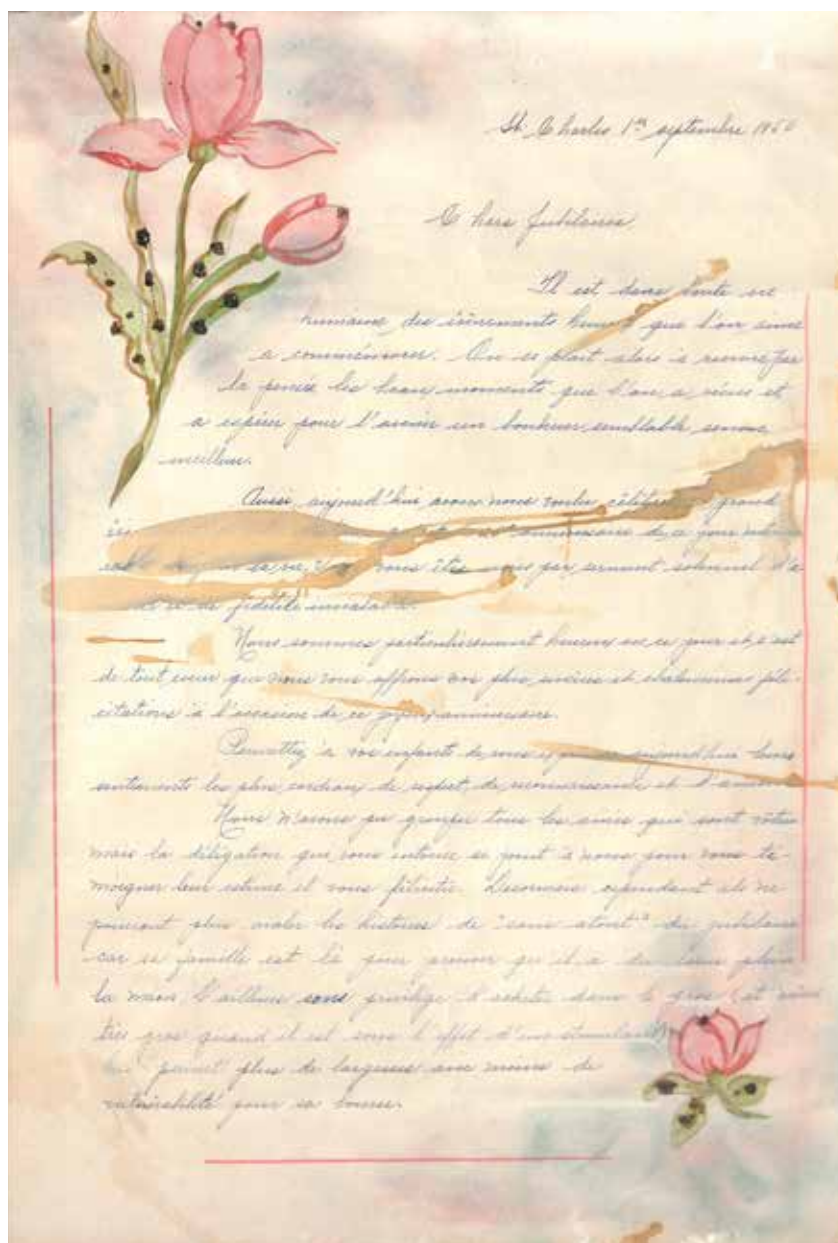 St Charles 1er septembre 1950
Chers Jubilaires
Il est dans toute vie
humaine, des évènements heureux que l'on aime
a commémorer. On se plait alors à revivre par
la pensée les beaux moments que l'on a vécus et
a espérer pour l'avenir un bonheur semblable sinon
meilleur.
Aussi, aujourd'hui avons nous voulu célébrer grand
anniversaire de ce jour
sa vie, vous êtes unis par serment solennel d'a
de fidélité
Nous sommes particulièrement heureux en ce jour et c'est
de tout coeur que nous vous offrons nos plus sincères et chaleureuses féli-
citations à l'occasion de ce anniversaire.
Permettez à vos enfants de vous aujourd'hui leurs
sentiments les plus cordiaux de respect, de reconnaissance et d'amour
Nous n'avons pu grouper tous les amis qui sont vôtres
mais la délégation qui vous entoure se joint à nous pour vous té-
moigner leur estime et vous féliciter. Désormais cependant ils ne
pourront plus avaler les histoires de "sans atout" du jubilaire
car sa famille est là pour prouver qu'il a du coeur plein
la main. D'ailleurs son privilège d'acheter dans le gros (et même
très gros quand il est sous l'effet d'un stimulant)
lui permet plus de largesses avec moins de
vulnérabilité pour sa bourse.